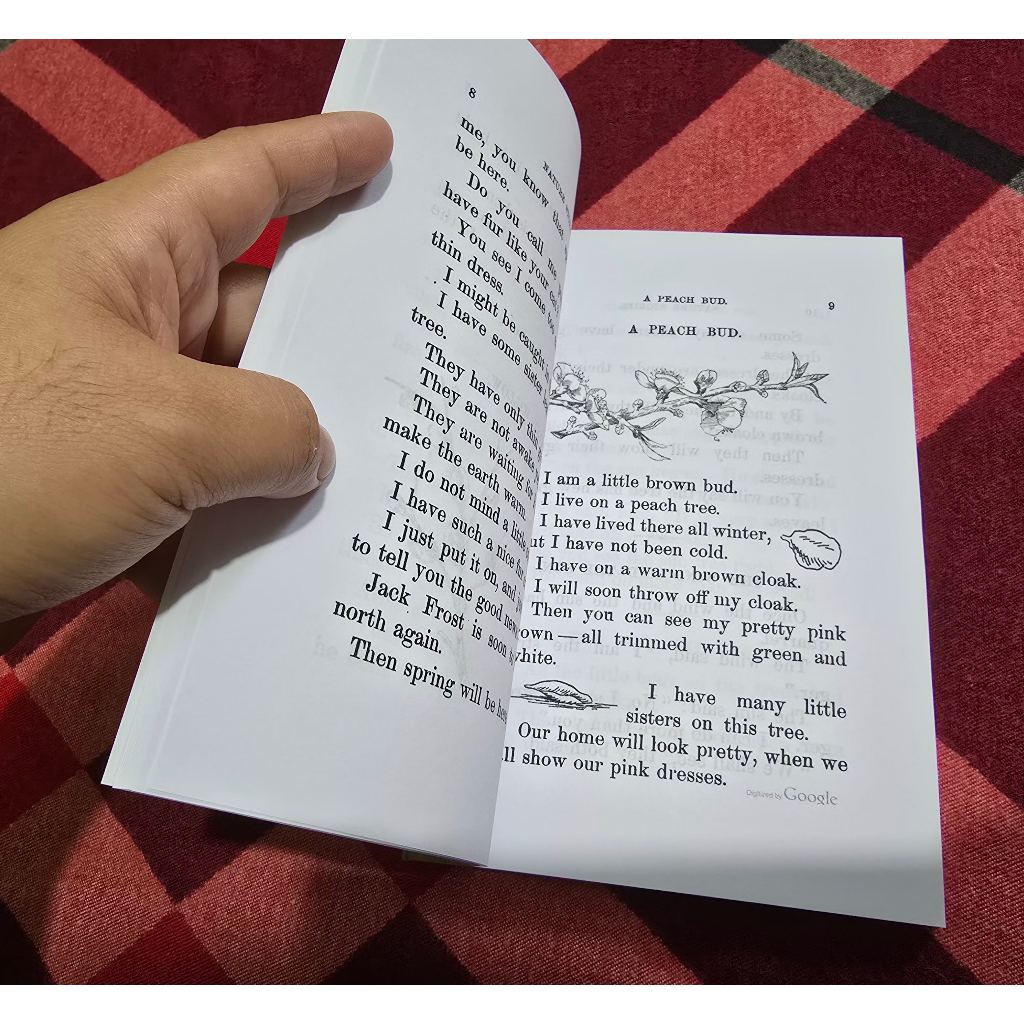 8
me, you know that
be here.
Do you call me
have fur like your cat
You see I come too
thin dress.
I might be caught
I have some sister
tree.
They have only thin
They are not awake
They are waiting for
make the earth warm
I do not mind a little
I have such a nice fur
I just put it on, and
to tell you the good news
Jack Frost is soon
north again.
Then spring will be here
A PEACH BUD. 9
A PEACH BUD.
I am a little brown bud.
I live on a peach tree.
I have lived there all winter,
I have not been cold.
I have on a warm brown cloak.
I will soon throw off my cloak.
Then you can see my pretty pink
all trimmed with green and
white.
I have many little
sisters on this tree.
Our home will look pretty, when we
show our pink dresses.
Digitized by Google